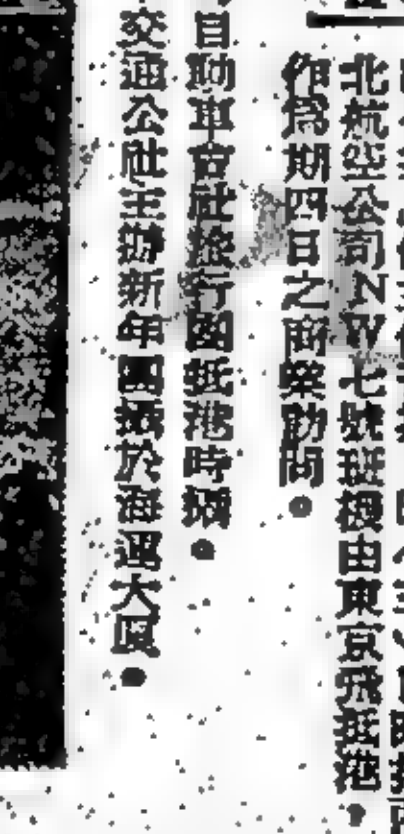 北航空公司NW七號班機由東京飛抵港，
作爲期四日之商業訪問。
自動車會社旅行團抵港時攝。
交通公社主辦新年團攝於海運大厦。